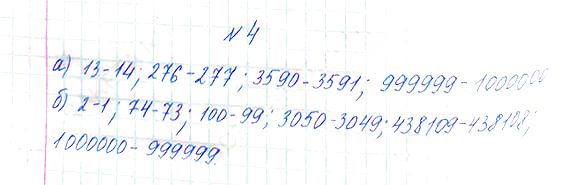 №4
а) 13-14; 276-277; 3590-3591; 999999-1000000
б) 2-1; 74-73; 100-99; 3050-3049; 438109-438108;
1000000-999999.